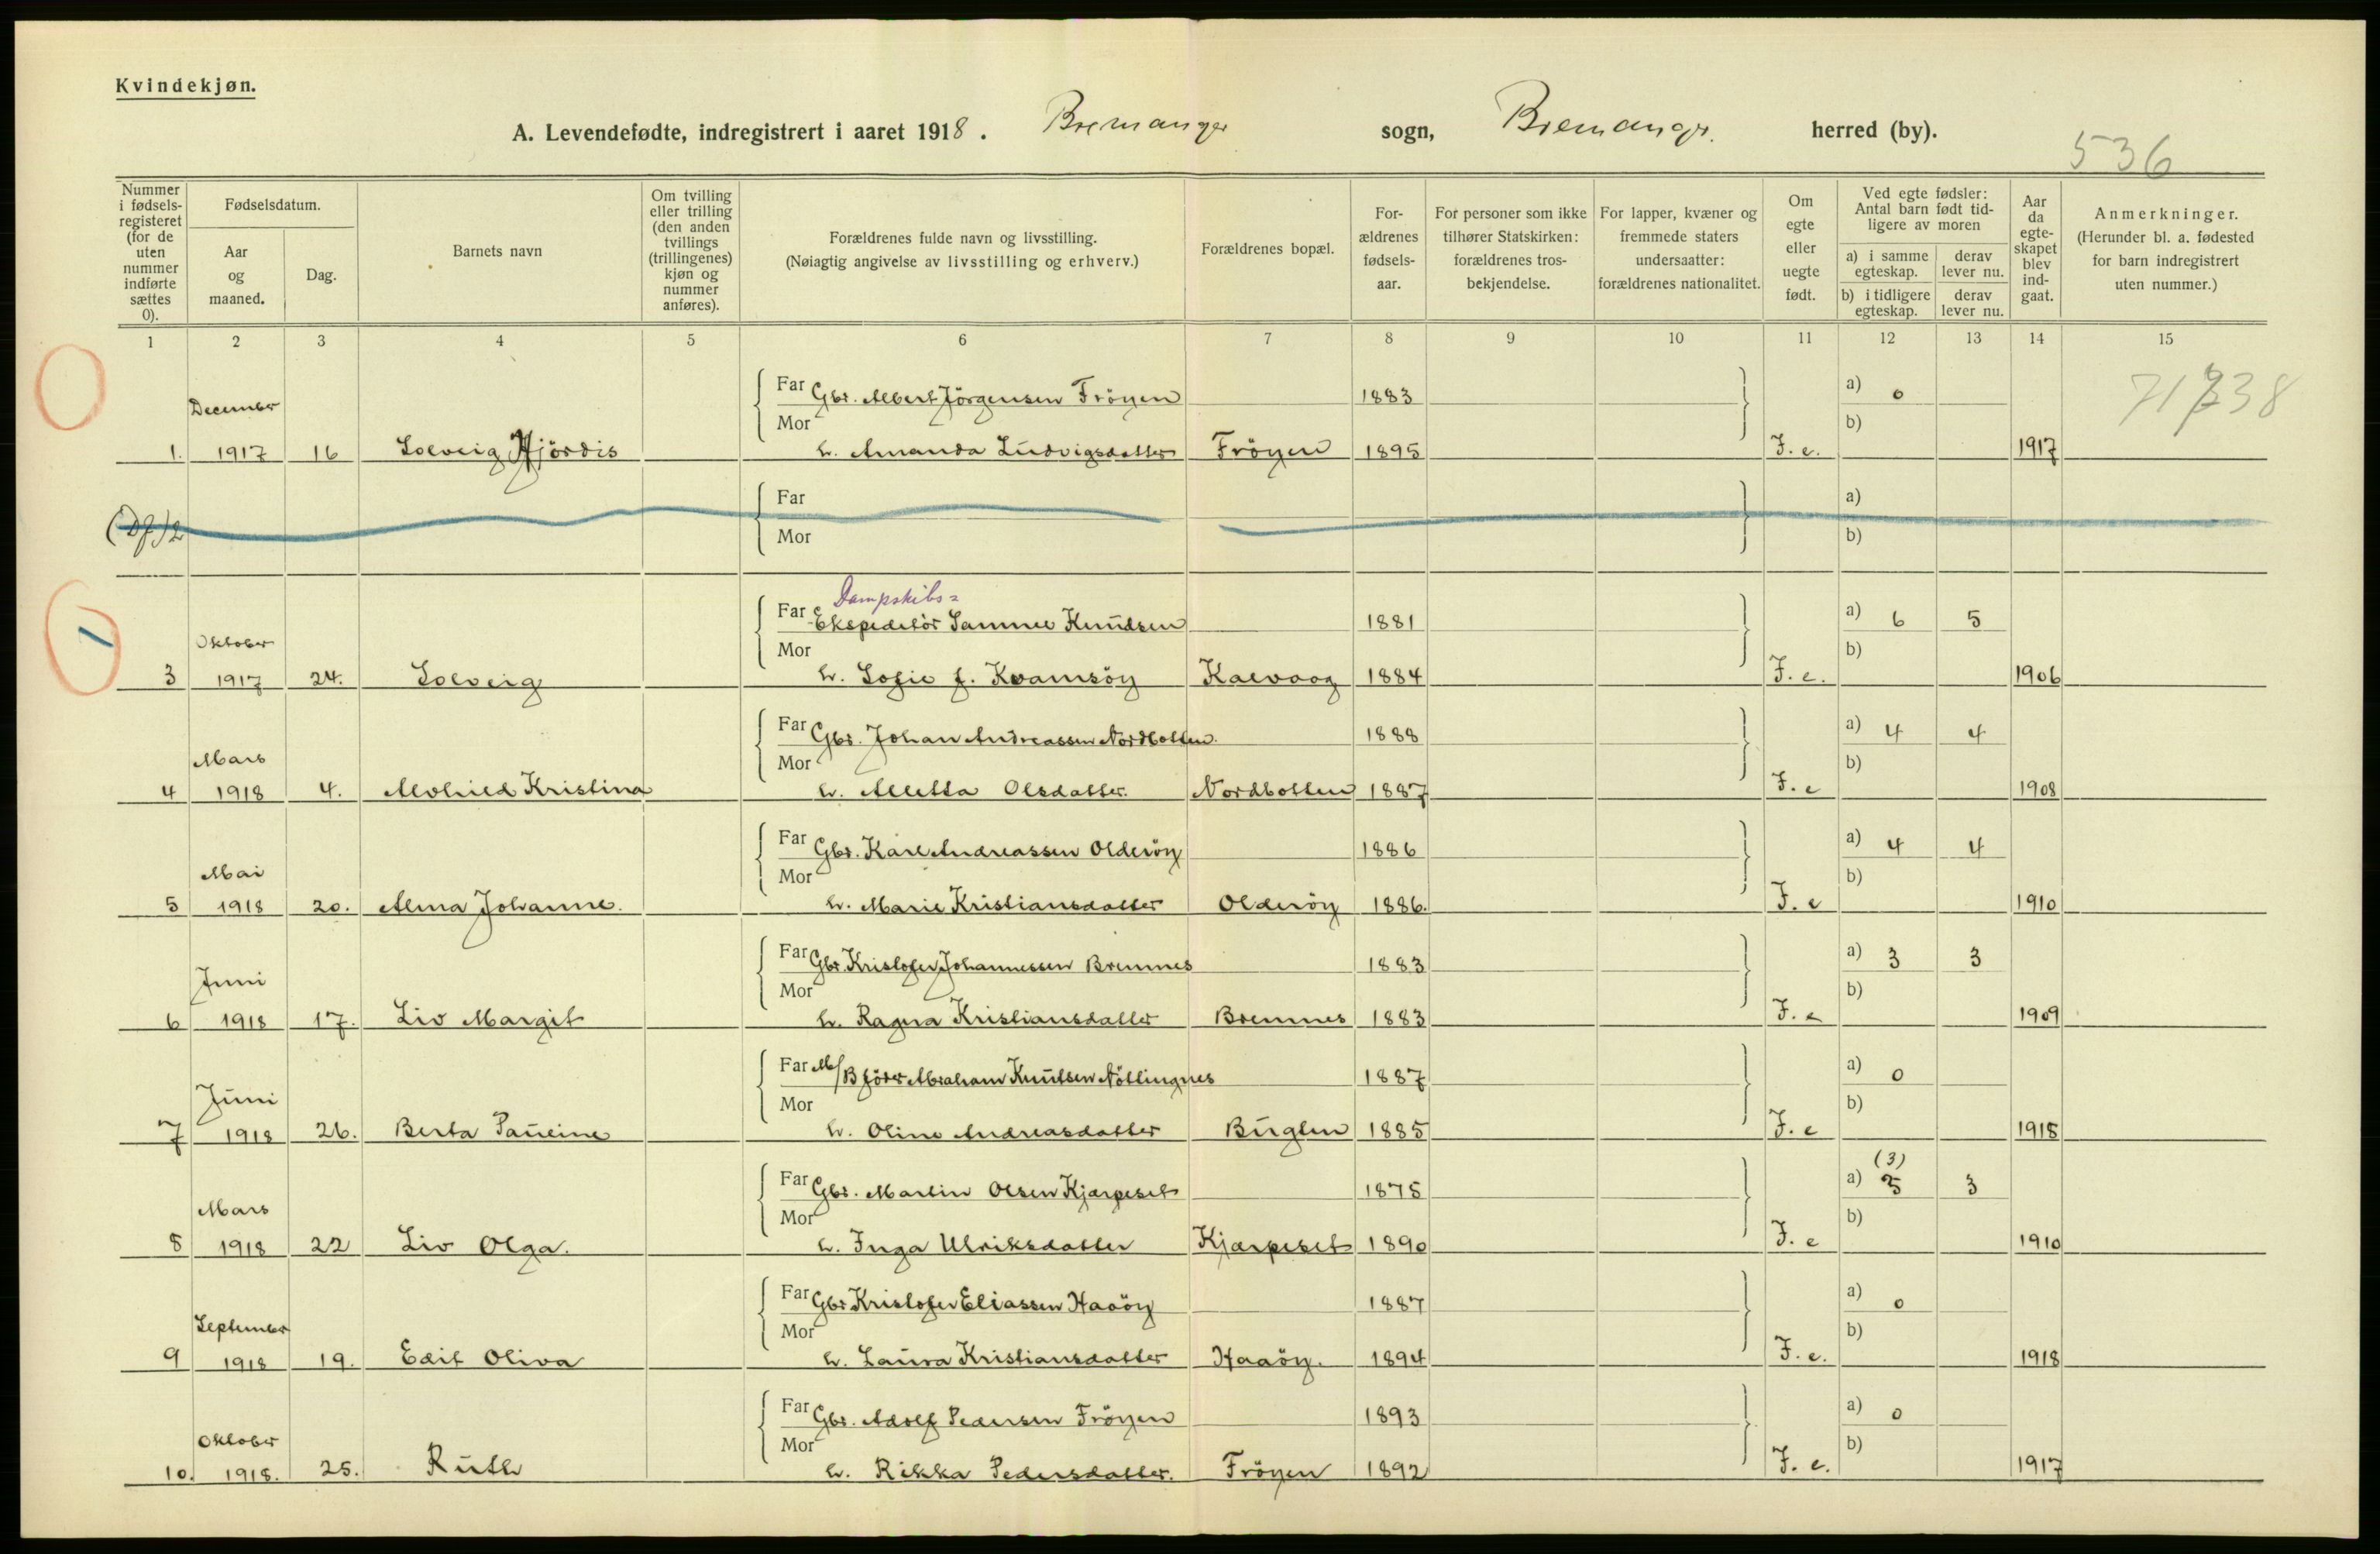 Kvindekjøn.
A. Levendefødte, indregistrert i aaret 1918. Bremanger sogn, Bremangr. herred (by).
536
Nummer i fødselsregisteret (for de uten nummer indførte sættes 0).
Fødselsdatum.
Aar og maaned.
Dag.
Barnets navn
Om tvilling eller trilling (den anden tvillings (trillingenes) kjøn og nummer anføres).
Forældrenes fulde navn og livsstilling.
(Nøiagtig angivelse av livsstilling og erhverv.)
Forældrenes bopæl.
Forældrenes fødselsaar.
For personer som ikke tilhører Statskirken: forældrenes trosbekjendelse.
For lapper, kvæner og fremmede staters undersaatter: forældrenes nationalitet.
Om egte eller uegte født.
Ved egte fødsler: Antal barn født tidligere av moren
a) i samme egteskap. derav lever nu.
b) i tidligere egteskap. derav lever nu.
Aar da egteskapet blev indgaat.
Anmerkninger.
(Herunder bl. a. fødested for barn indregistrert uten nummer.)
1 2 3 4 5 6 7 8 9 10 11 12 13 14 15
December Far Gbr. Albert Jörgensen Fröyen 1883 a) 0
Mor b)
1. 1917 16 Solveig Hjördis h. Amanda Ludvigsdatter Fröyen 1895 F. e. 1917
Far a)
(Df) 2
Mor b)
Dampskibs=
Far Ekspeditör Sammee Knudsen 1881 a) 6 5
1
Oktober Mor b)
3 1917 24. Solveig h. Sofie f. Kvamsöy Kalvaag 1884 F. e. 1906
Far Gbr. Johan Andreassen Nordbotten. 1888 a) 4 4
Mars Mor b)
4 1918 4. Alvhild Kristina h. Alletta Olsdatter. Nordbotten 1887 F. e 1908
Far Gbr. Karl Andreassen Olderöy 1886 a) 4 4
Mai Mor b)
5 1918 20. Alma Johanne. h. Marie Kristiansdatter Olderöy 1886. F. e 1910
Far Gbr. Kristofer Johannessen Bremnes 1883 a) 3 3
Juni Mor b)
6 1918 17. Liv Margit h. Ragna Kristiansdatter Bremnes 1883 F. e 1909
Far M/B förer Abraham Knutsen Nötlingnes 1887 a) 0
Juni Mor b)
7 1918 26. Berta Pauline h. Oline Andreasdatter Buglen 1885 F. e 1918
(3)
Far Gbr. Martin Olsen Kjærpeset 1875 a) 3
Mars Mor b)
8 1918 22 Liv Olga. h. Inga Ulriksdatter Kjærpeset 1890 F. e 1910
Far Gbr Kristofer Eliassen Haaöy 1887 a) 0
September Mor b)
9 1918 19. Edit Oliva h. Laura Kristiansdatter Haaöy. 1894 F. e. 1918
Far Gbr. Adolf Pedersen Fröyen 1893 a) 0
Oktober Mor b)
10. 1918. 25. Ruth h. Rikka Pedersdatter. Fröyen 1892 F. e. 1917